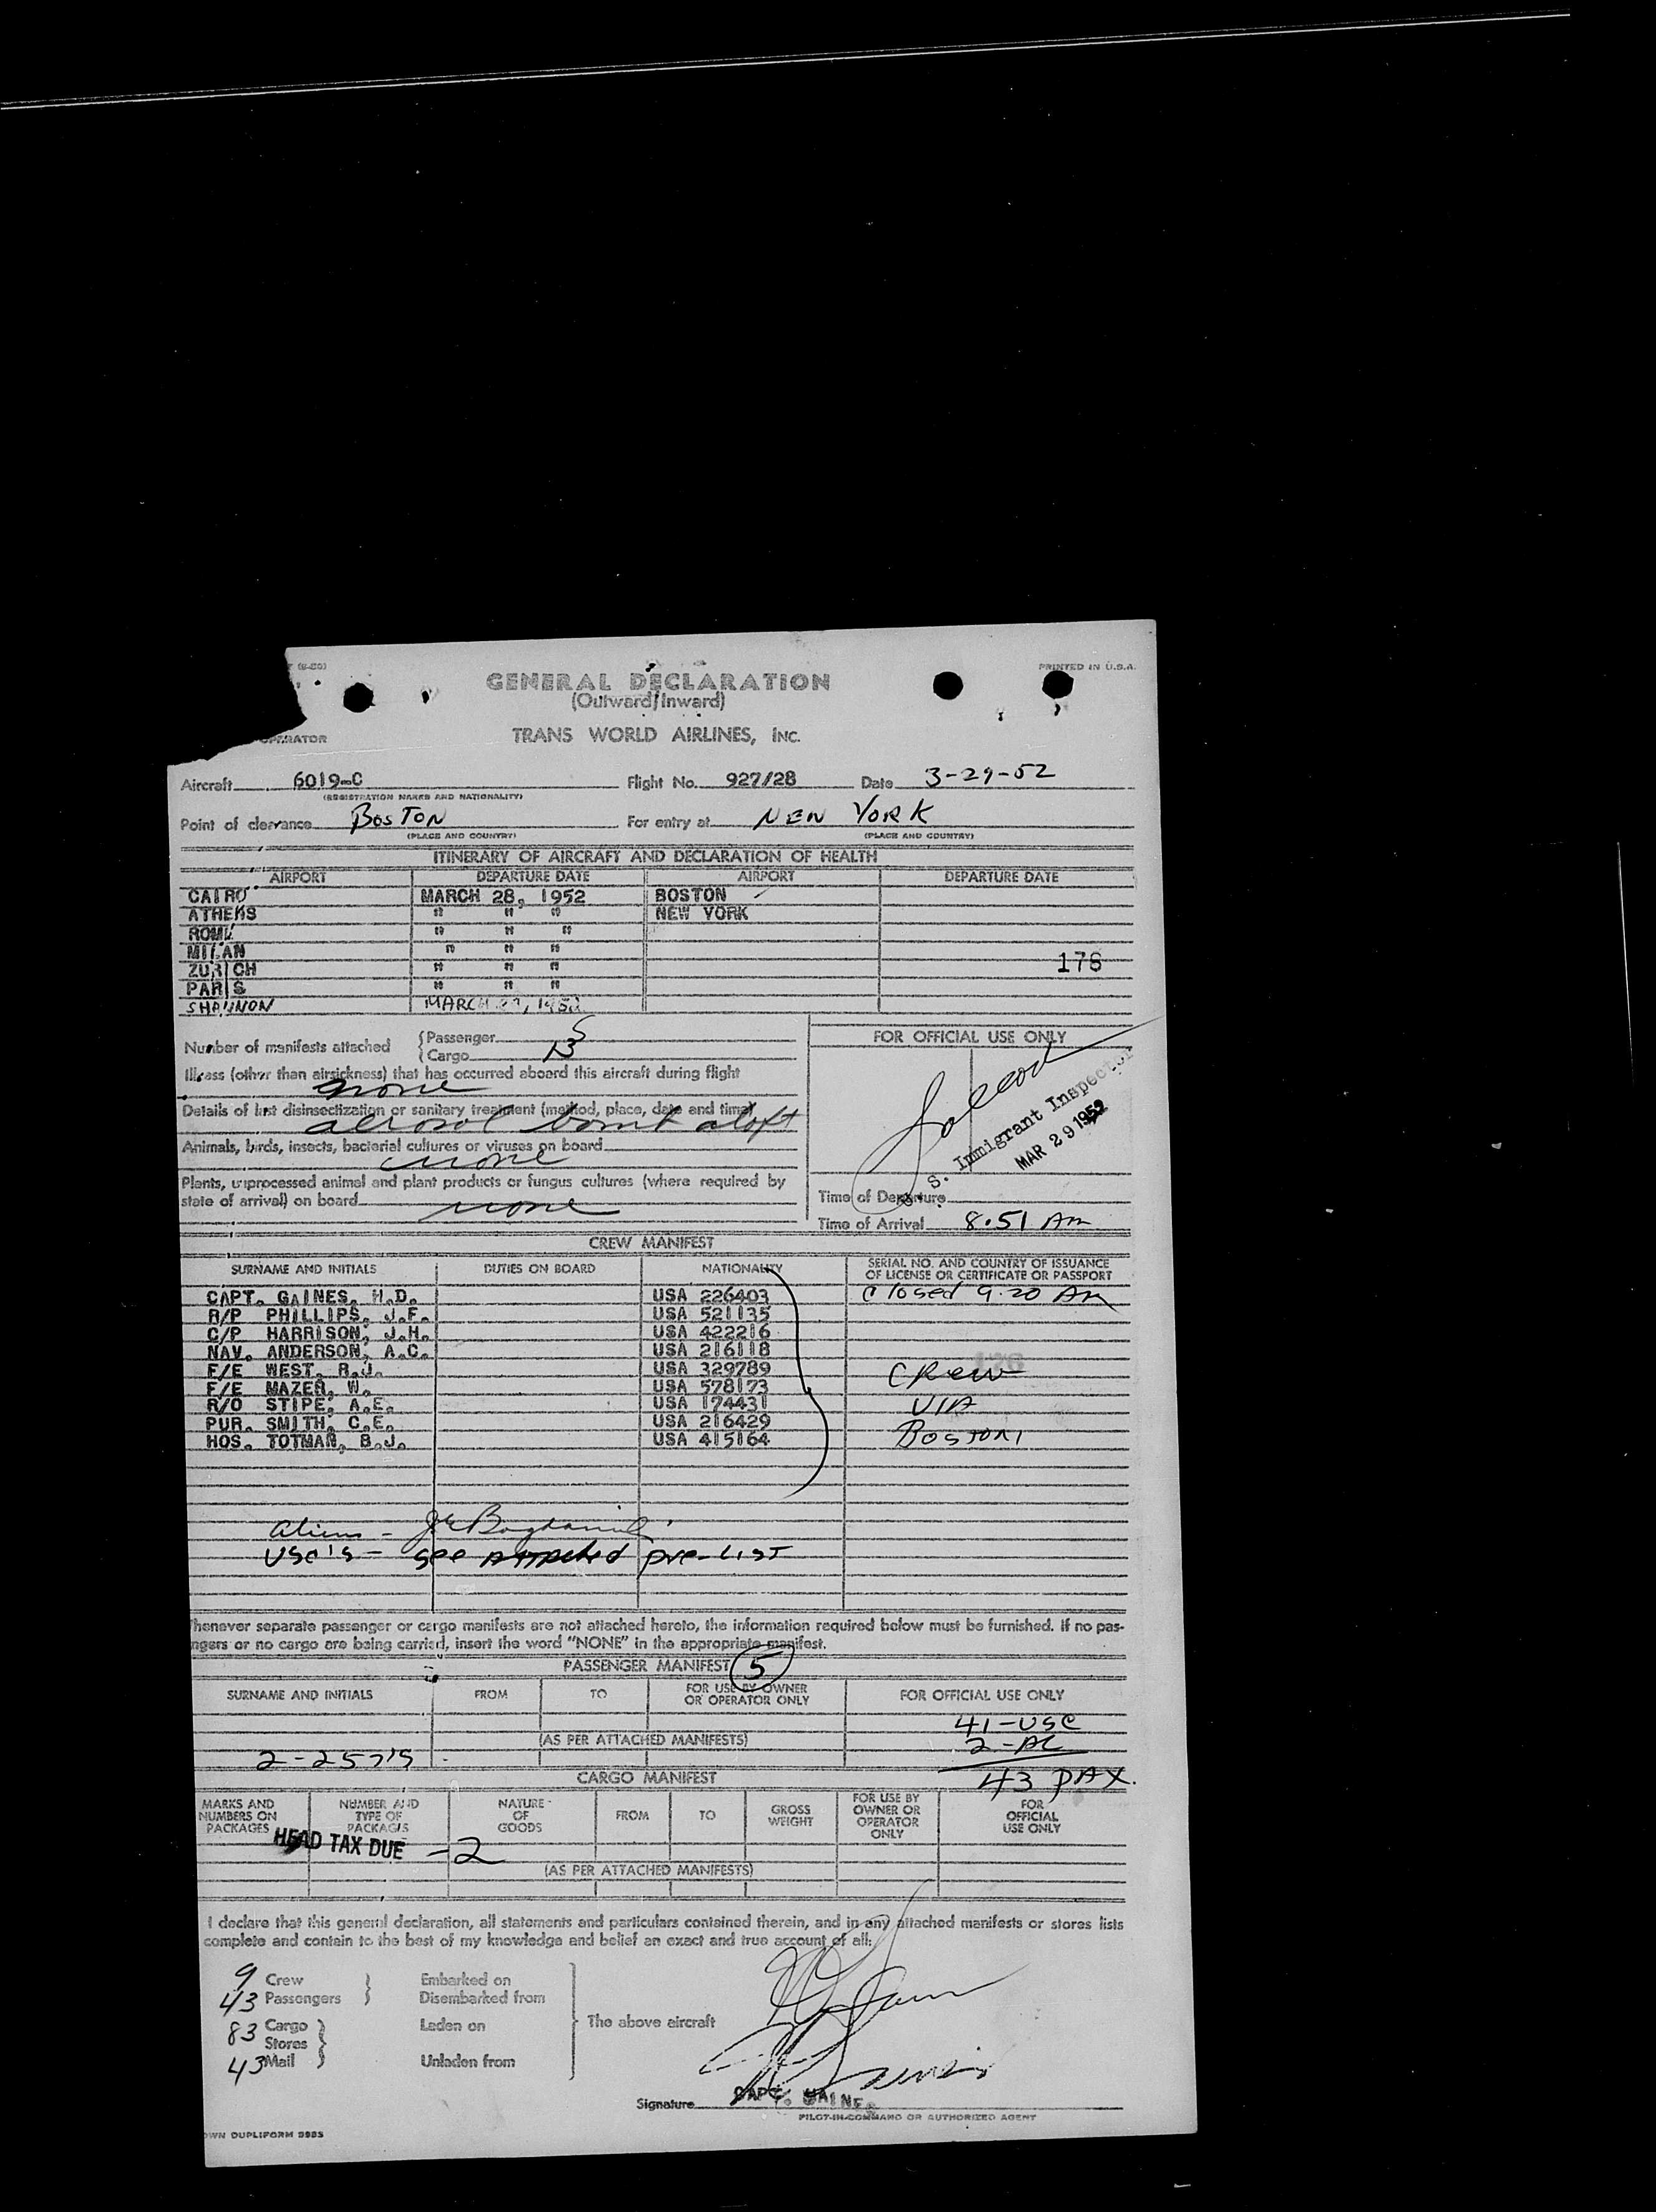 (8-50)
PRINTED IN U.S.A.
GENERAL DECLARATION
(Outward/Inward)
OPERATOR
TRANS WORLD AIRLINES, INC.
Aircraft 6019-C Flight No. 927/28 Date 3-29-52
(REGISTRATION MARKS AND NATIONALITY)
Point of clearance BOSTON For entry at NEW YORK
(PLACE AND COUNTRY) (PLACE AND COUNTRY)
ITINERARY OF AIRCRAFT AND DECLARATION OF HEALTH
AIRPORT DEPARTURE DATE AIRPORT DEPARTURE DATE
CAIRO MARCH 28, 1952 BOSTON
ATHENS " " " NEW YORK
ROME " " "
MILAN " " "
ZURICH " " " 176
PARIS " " "
SHANNON MARCH 29, 1952
Number of manifests attached
Passenger 5
Cargo 13
FOR OFFICIAL USE ONLY
Illness (other than airsickness) that has occurred aboard this aircraft during flight
none
Details of last disinsectization or sanitary treatment (method, place, date and time)
aerosol bomb aloft
Animals, birds, insects, bacterial cultures or viruses on board
none
Plants, unprocessed animal and plant products or fungus cultures (where required by
state of arrival) on board none
U. S. Immigrant Inspector
MAR 29 1952
Time of Departure
Time of Arrival 8.51 Am
CREW MANIFEST
SURNAME AND INITIALS DUTIES ON BOARD NATIONALITY SERIAL NO. AND COUNTRY OF ISSUANCE
OF LICENSE OR CERTIFICATE OR PASSPORT
CAPT. GAINES, H.D. USA 226403 Closed 9.20 AM
R/P PHILLIPS, J.F. USA 521135
C/P HARRISON, J.H. USA 422216
NAV. ANDERSON, A.C. USA 216118
F/E WEST, R.J. USA 329789 CREW
F/E MAZER, W. USA 578173
R/O STIPE, A.E. USA 174431 VIA
PUR. SMITH, C.E. USA 216429
HOS. TOTMAN, B.J. USA 415164 BOSTON
176
Aliens -
USC'S - see attached pre-LIST
henever separate passenger or cargo manifests are not attached hereto, the information required below must be furnished. If no pas-
ngers or no cargo are being carried, insert the word "NONE" in the appropriate manifest.
PASSENGER MANIFEST 5
SURNAME AND INITIALS FROM TO FOR USE BY OWNER
OR OPERATOR ONLY
FOR OFFICIAL USE ONLY
41-USC
(AS PER ATTACHED MANIFESTS) 2-AL
2-257's
43 PAX.
CARGO MANIFEST
MARKS AND
NUMBERS ON
PACKAGES
NUMBER AND
TYPE OF
PACKAGES
NATURE
OF
GOODS
FROM
TO
GROSS
WEIGHT
FOR USE BY
OWNER OR
OPERATOR
ONLY
FOR
OFFICIAL
USE ONLY
HEAD TAX DUE -2
(AS PER ATTACHED MANIFESTS)
I declare that this general declaration, all statements and particulars contained therein, and in any attached manifests or stores lists
complete and contain to the best of my knowledge and belief an exact and true account of all:
9 Crew Embarked on
43 Passengers Disembarked from
83 Cargo Laden on The above aircraft
Stores
43 Mail Unladen from
Signature CAPT. GAINES
PILOT-IN-COMMAND OR AUTHORIZED AGENT
OWN DUPLIFORM 9985